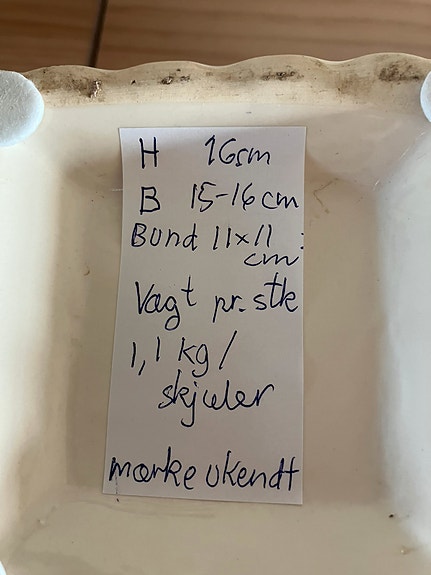 H 16cm
B 15-16 cm
Bund 11x11
cm
Vægt pr. stk
1,1 kg/
skjuler
mærke ukendt